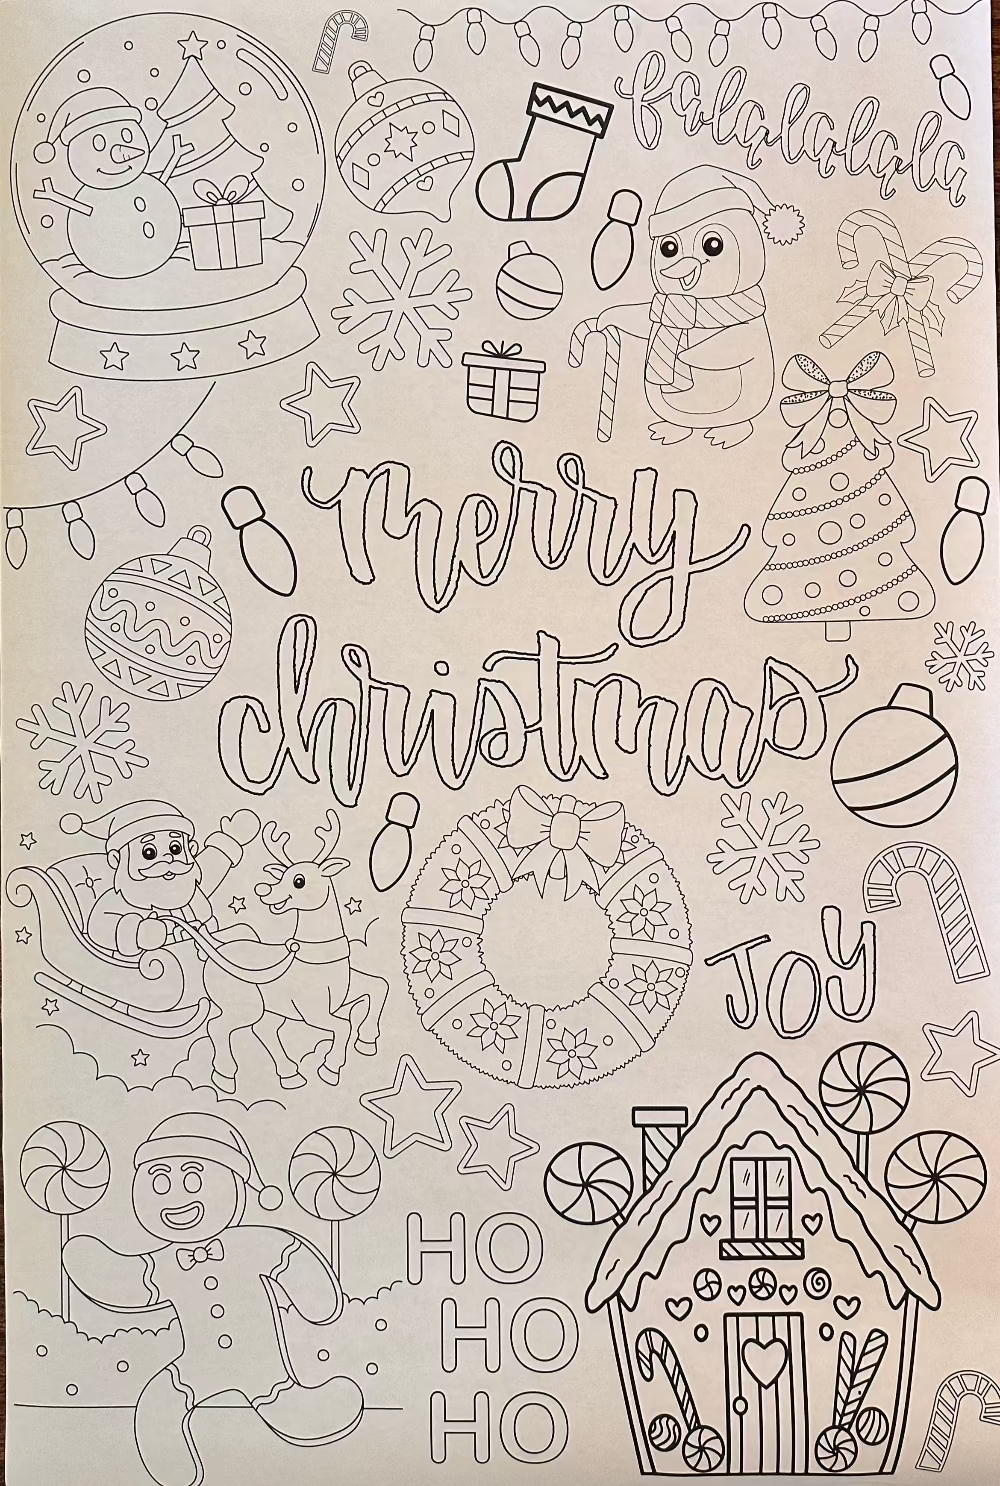 falalalala
merry
christmas
JOY
HO
HO
HO